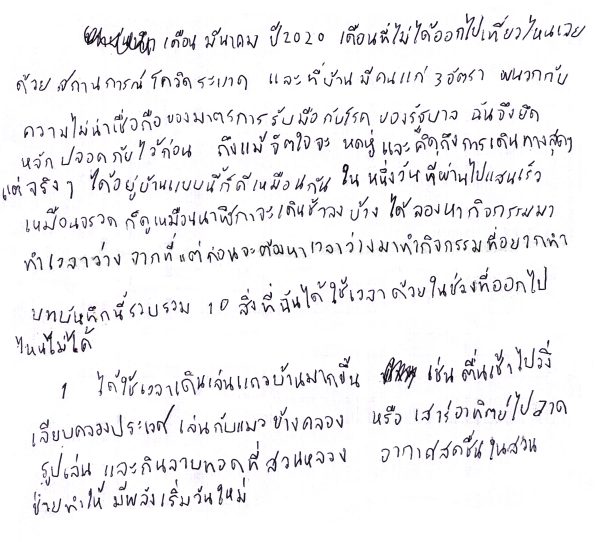 เดือน มีนาคม ปี2020 เดือนที่ไม่ได้ออกไปเที่ยวไหนเลย
ด้วยสถานการณ์ โควิดระบาด และที่บ้านมีคนแก่ 3 อัตรา ผนวกกับ
ความไม่น่าเชื่อถือของมาตรการรับมือกับโรค ของรัฐบาล ฉันจึงยึด
หลักปลอดภัยไว้ก่อน ถึงแม้จิตใจจะ หดหู่ และคิดถึงการเดินทางสุดๆ
แต่จริงๆ ได้อยู่บ้านแบบนี้ก็ดีเหมือนกัน ใน หนึ่งวัน ที่ผ่านไปแสนเร็ว
เหมือนจรวด ก็ดูเหมือนนาฬิกาจะเดินช้าลง บ้าง ได้ลองหา กิจกรรมมา
ทำเวลาว่าง จากที่แต่ก่อนจะต้องหาเวลาว่างมาทำกิจกรรมที่อยากทำ
บทบันทึกนี้รวบรวม 10 สิ่งที่ฉันได้ใช้เวลาด้วยในช่วงที่ออกไป
ไหนไม่ได้
1 ได้ใช้เวลาเดินเล่นแถวบ้านมากขึ้น เช่น ตื่นเช้าไปวิ่ง
เลียบคลองประเวศ เล่นกับแมวข้างคลอง หรือ เสาร์อาทิตย์ไปวาด
รูปเล่น และกินลาบทอดที่สวนหลวง อากาศสดชื่นในสวน
ช่วยทำให้ มีพลังเริ่มวันใหม่